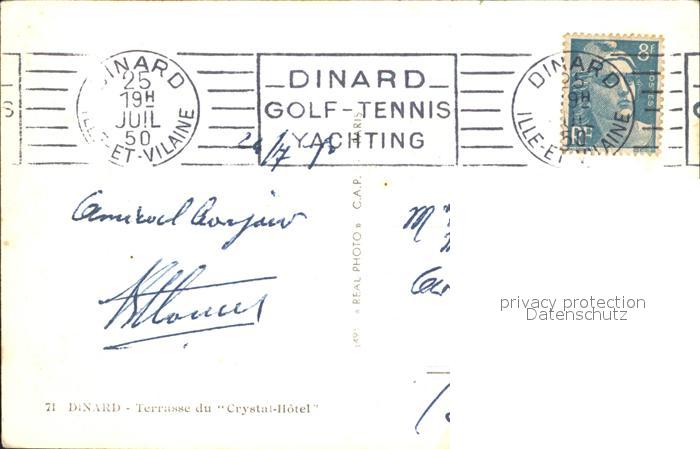 DINARD
25
19H
JUIL
50
ILLE-ET-VILAINE
DINARD
GOLF-TENNIS
YACHTING
DINARD
25
19H
JUIL
50
ILLE-ET-VILAINE
8F
POSTES
Amical bonjour
M
"REAL PHOTO" C.A.P. PARIS
privacy protection
Datenschutz
71 DINARD - Terrasse du "Crystal-Hôtel"